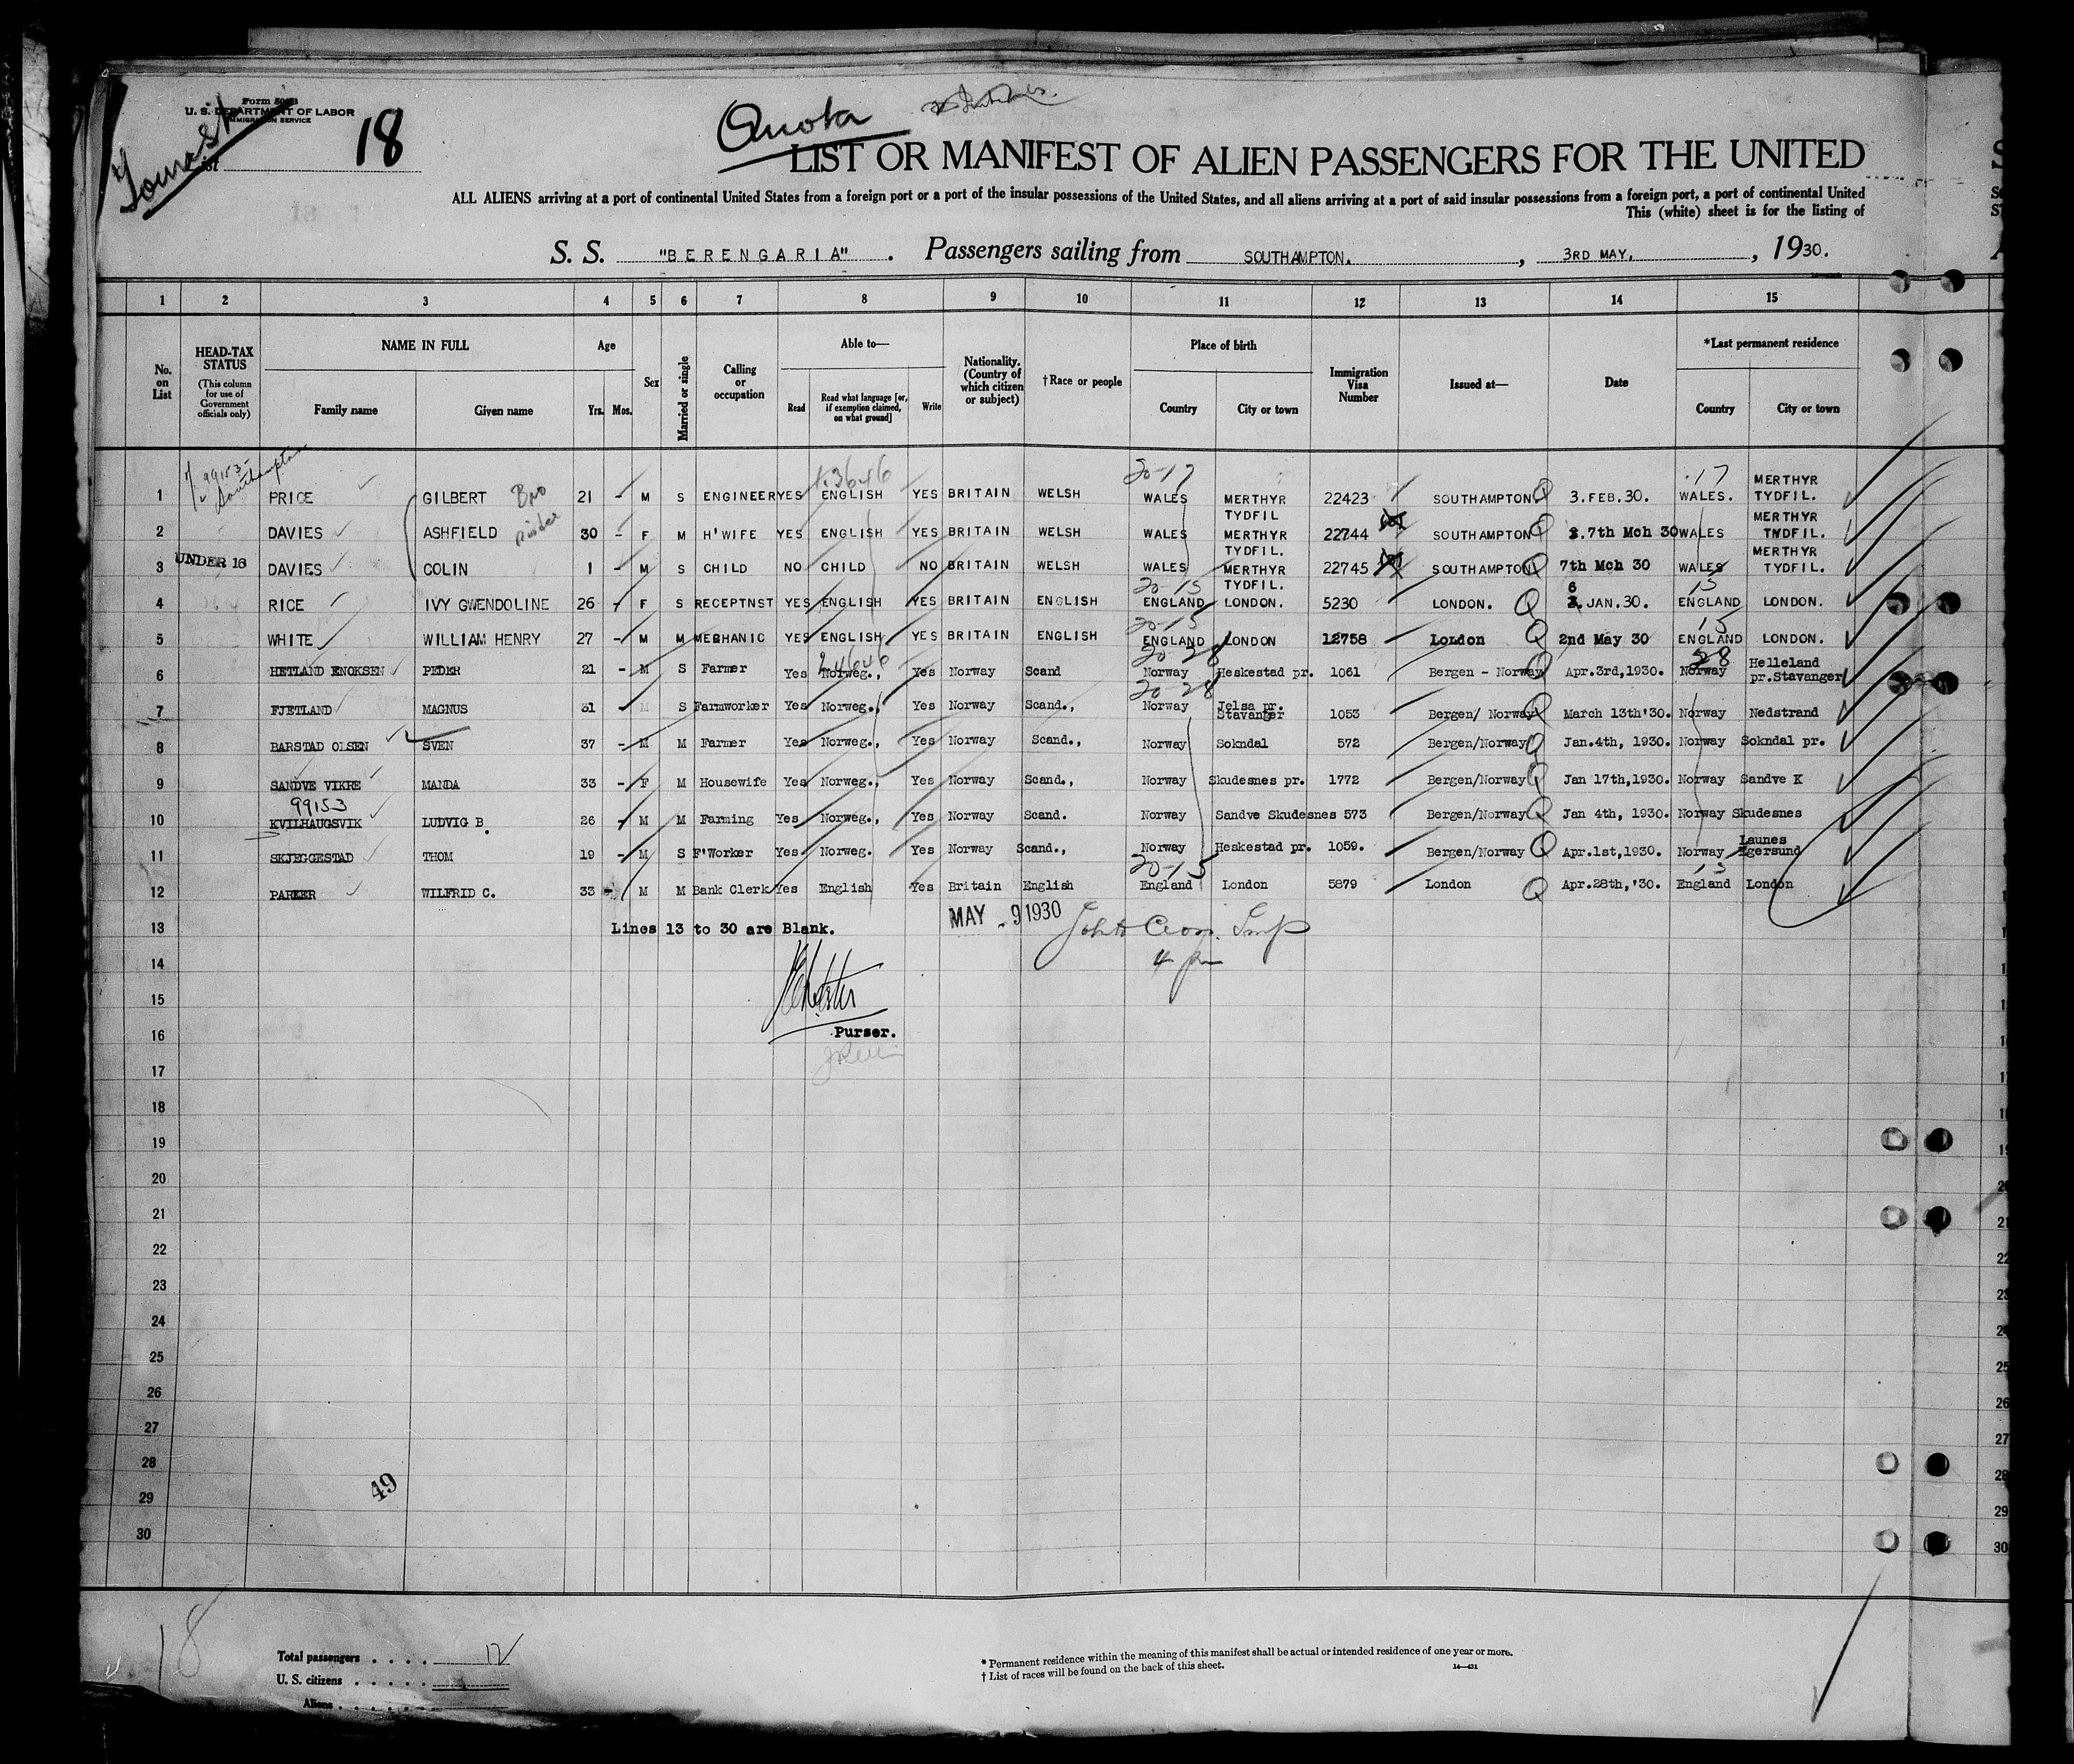 Form 500B
U. S. DEPARTMENT OF LABOR
IMMIGRATION SERVICE
Tourist
List
18
Quota
LIST OR MANIFEST OF ALIEN PASSENGERS FOR THE UNITED
ALL ALIENS arriving at a port of continental United States from a foreign port or a port of the insular possessions of the United States, and all aliens arriving at a port of said insular possessions from a foreign port, a port of continental United
This (white) sheet is for the listing of
S. S. "BERENGARIA" . Passengers sailing from SOUTHAMPTON. , 3RD MAY. , 1930.
1 2 3 4 5 6 7 8 9 10 11 12 13 14 15
No. on List
HEAD-TAX STATUS (This column for use of Government officials only)
NAME IN FULL Family name Given name
Age Yrs. Mos.
Sex
Married or single
Calling or occupation
Able to— Read Read what language [or, if exemption claimed, on what ground] Write
Nationality. (Country of which citizen or subject)
†Race or people
Place of birth Country City or town
Immigration Visa Number
Issued at—
Date
*Last permanent residence Country City or town
99153- Southampton
1 PRICE GILBERT Bro 21 - M S ENGINEER YES ENGLISH YES BRITAIN WELSH 20-17 WALES MERTHYR TYDFIL 22423 SOUTHAMPTON Q 3.FEB.30. 17 WALES. MERTHYR TYDFIL.
2 DAVIES ASHFIELD 30 - F M H'WIFE YES ENGLISH YES BRITAIN WELSH WALES MERTHYR TYDFIL. 22744 SOUTHAMPTON Q 7th Mch 30 WALES MERTHYR TYDFIL.
UNDER 16
3 DAVIES COLIN 1 - M S CHILD NO CHILD NO BRITAIN WELSH WALES MERTHYR TYDFIL. 22745 SOUTHAMPTON Q 7th Mch 30 WALES MERTHYR TYDFIL.
4 RICE IVY GWENDOLINE 26 - F S RECEPTNST YES ENGLISH YES BRITAIN ENGLISH 20-15 ENGLAND LONDON. 5230 LONDON. Q 6 JAN.30. 15 ENGLAND LONDON.
5 WHITE WILLIAM HENRY 27 - M M MECHANIC YES ENGLISH YES BRITAIN ENGLISH 20-15 ENGLAND LONDON 12758 London Q 2nd May 30 15 ENGLAND LONDON.
6 HETLAND ENOKSEN PEDER 21 - M S Farmer Yes Norweg., Yes Norway Scand 20-28 Norway Heskestad pr. 1061 Bergen - Norway Q Apr.3rd,1930. 28 Norway Helleland pr.Stavanger
7 FJETLAND MAGNUS 31 - M S Farmworker Yes Norweg., Yes Norway Scand., 20-28 Norway Jelsa pr. Stavanger 1053 Bergen/ Norway Q March 13th'30. Norway Nedstrand
8 BARSTAD OLSEN SVEN 37 - M M Farmer Yes Norweg., Yes Norway Scand., Norway Sokndal 572 Bergen/Norway Q Jan.4th, 1930. Norway Sokndal pr.
9 SANDVE VIKRE MANDA 33 - F M Housewife Yes Norweg., Yes Norway Scand., Norway Skudesnes pr. 1772 Bergen/Norway Q Jan 17th,1930. Norway Sandve K
99153
10 KVILHAUGSVIK LUDVIG B. 26 - M M Farming Yes Norweg., Yes Norway Scand. Norway Sandve Skudesnes 573 Bergen/Norway Q Jan 4th, 1930. Norway Skudesnes
11 SKJEGGESTAD THOM 19 - M S F'Worker Yes Norweg. Yes Norway Scand., Norway Heskestad pr. 1059. Bergen/Norway Q Apr.1st,1930. Norway Launes Egersund
12 PARKER WILFRID C. 33 - M M Bank Clerk Yes English Yes Britain English 20-15 England London 5879 London Q Apr.28th,'30. 15 England London
13 Lines 13 to 30 are Blank. MAY 9 1930
14 4 pm
15
16 Purser.
17
18
19
20
21
22
23
24
25
26
27
28
29
30
49
18
Total passengers . . . . 12
U. S. citizens . . . . .
Aliens . . . . . .
* Permanent residence within the meaning of this manifest shall be actual or intended residence of one year or more.
† List of races will be found on the back of this sheet.
14—431